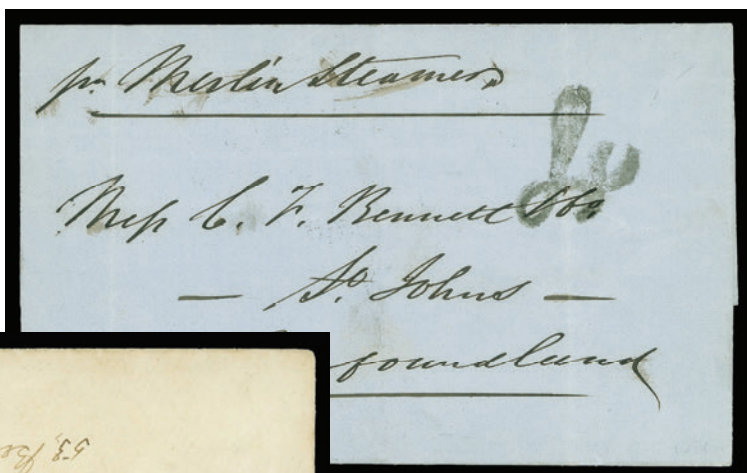 pr Merlin Steamer
Mess C. F. Bennett & Co
St Johns
foundland
53,